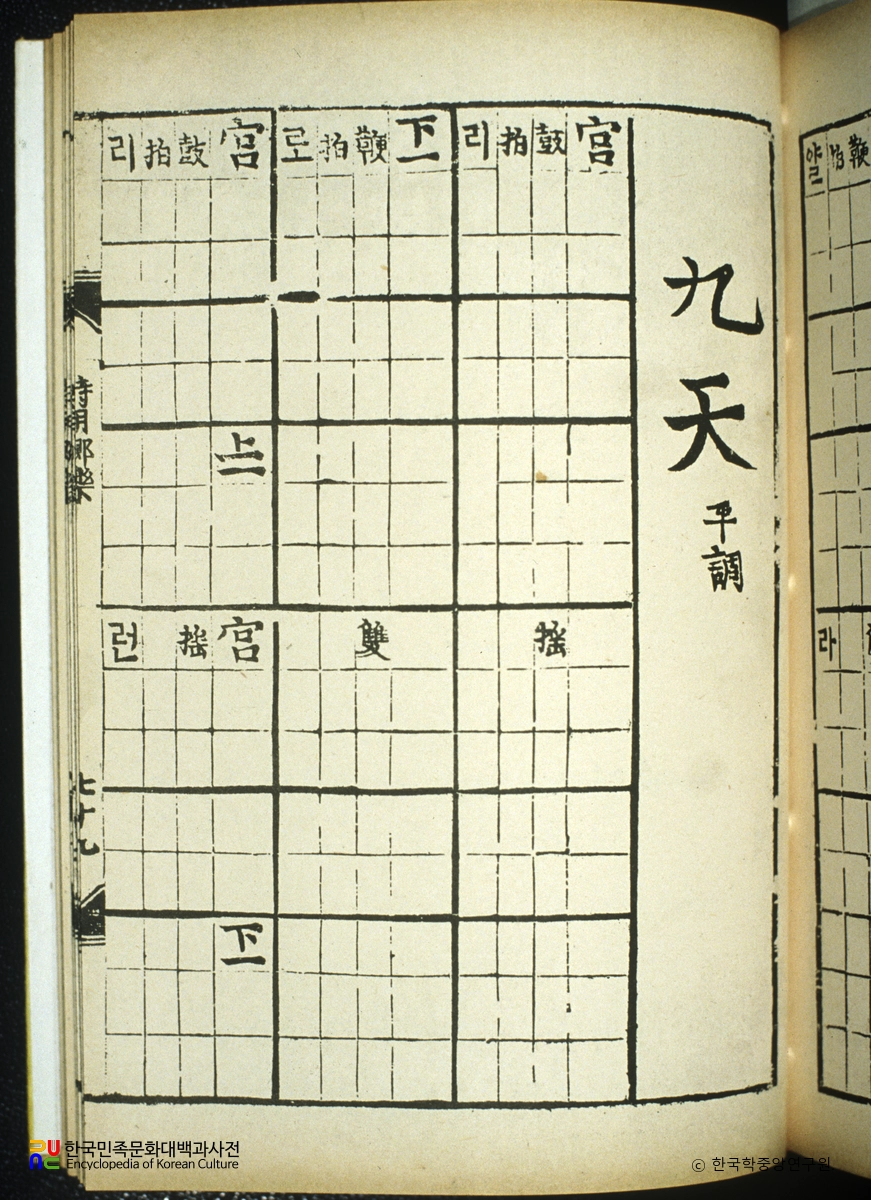 九天 平調
宮 鼓 拍 리
搖
下一 鞭 拍 로
雙
宮 鼓 拍 리
上一
宮 搖 런
下一
時用鄕樂
七十九
鞭
라
한국민족문화대백과사전
Encyclopedia of Korean Culture
© 한국학중앙연구원